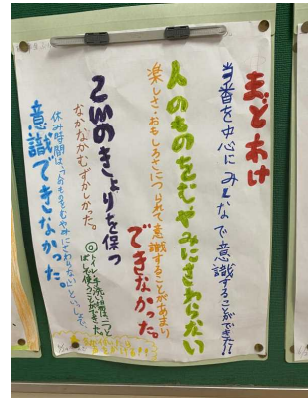 まどあけ
当番を中心にみんなで意識することができた!!
人のものをむやみにさわらない
楽しさ・おもしろさにつられて意識することがあまり
できなかった。
2mのきょりを保つ
なかなかむずかしかった。
◎トイレ・手洗い場は、
ことができた。
休み時間は、「人のものをむやみにさわらない」といっしょで、
意識できなかった。